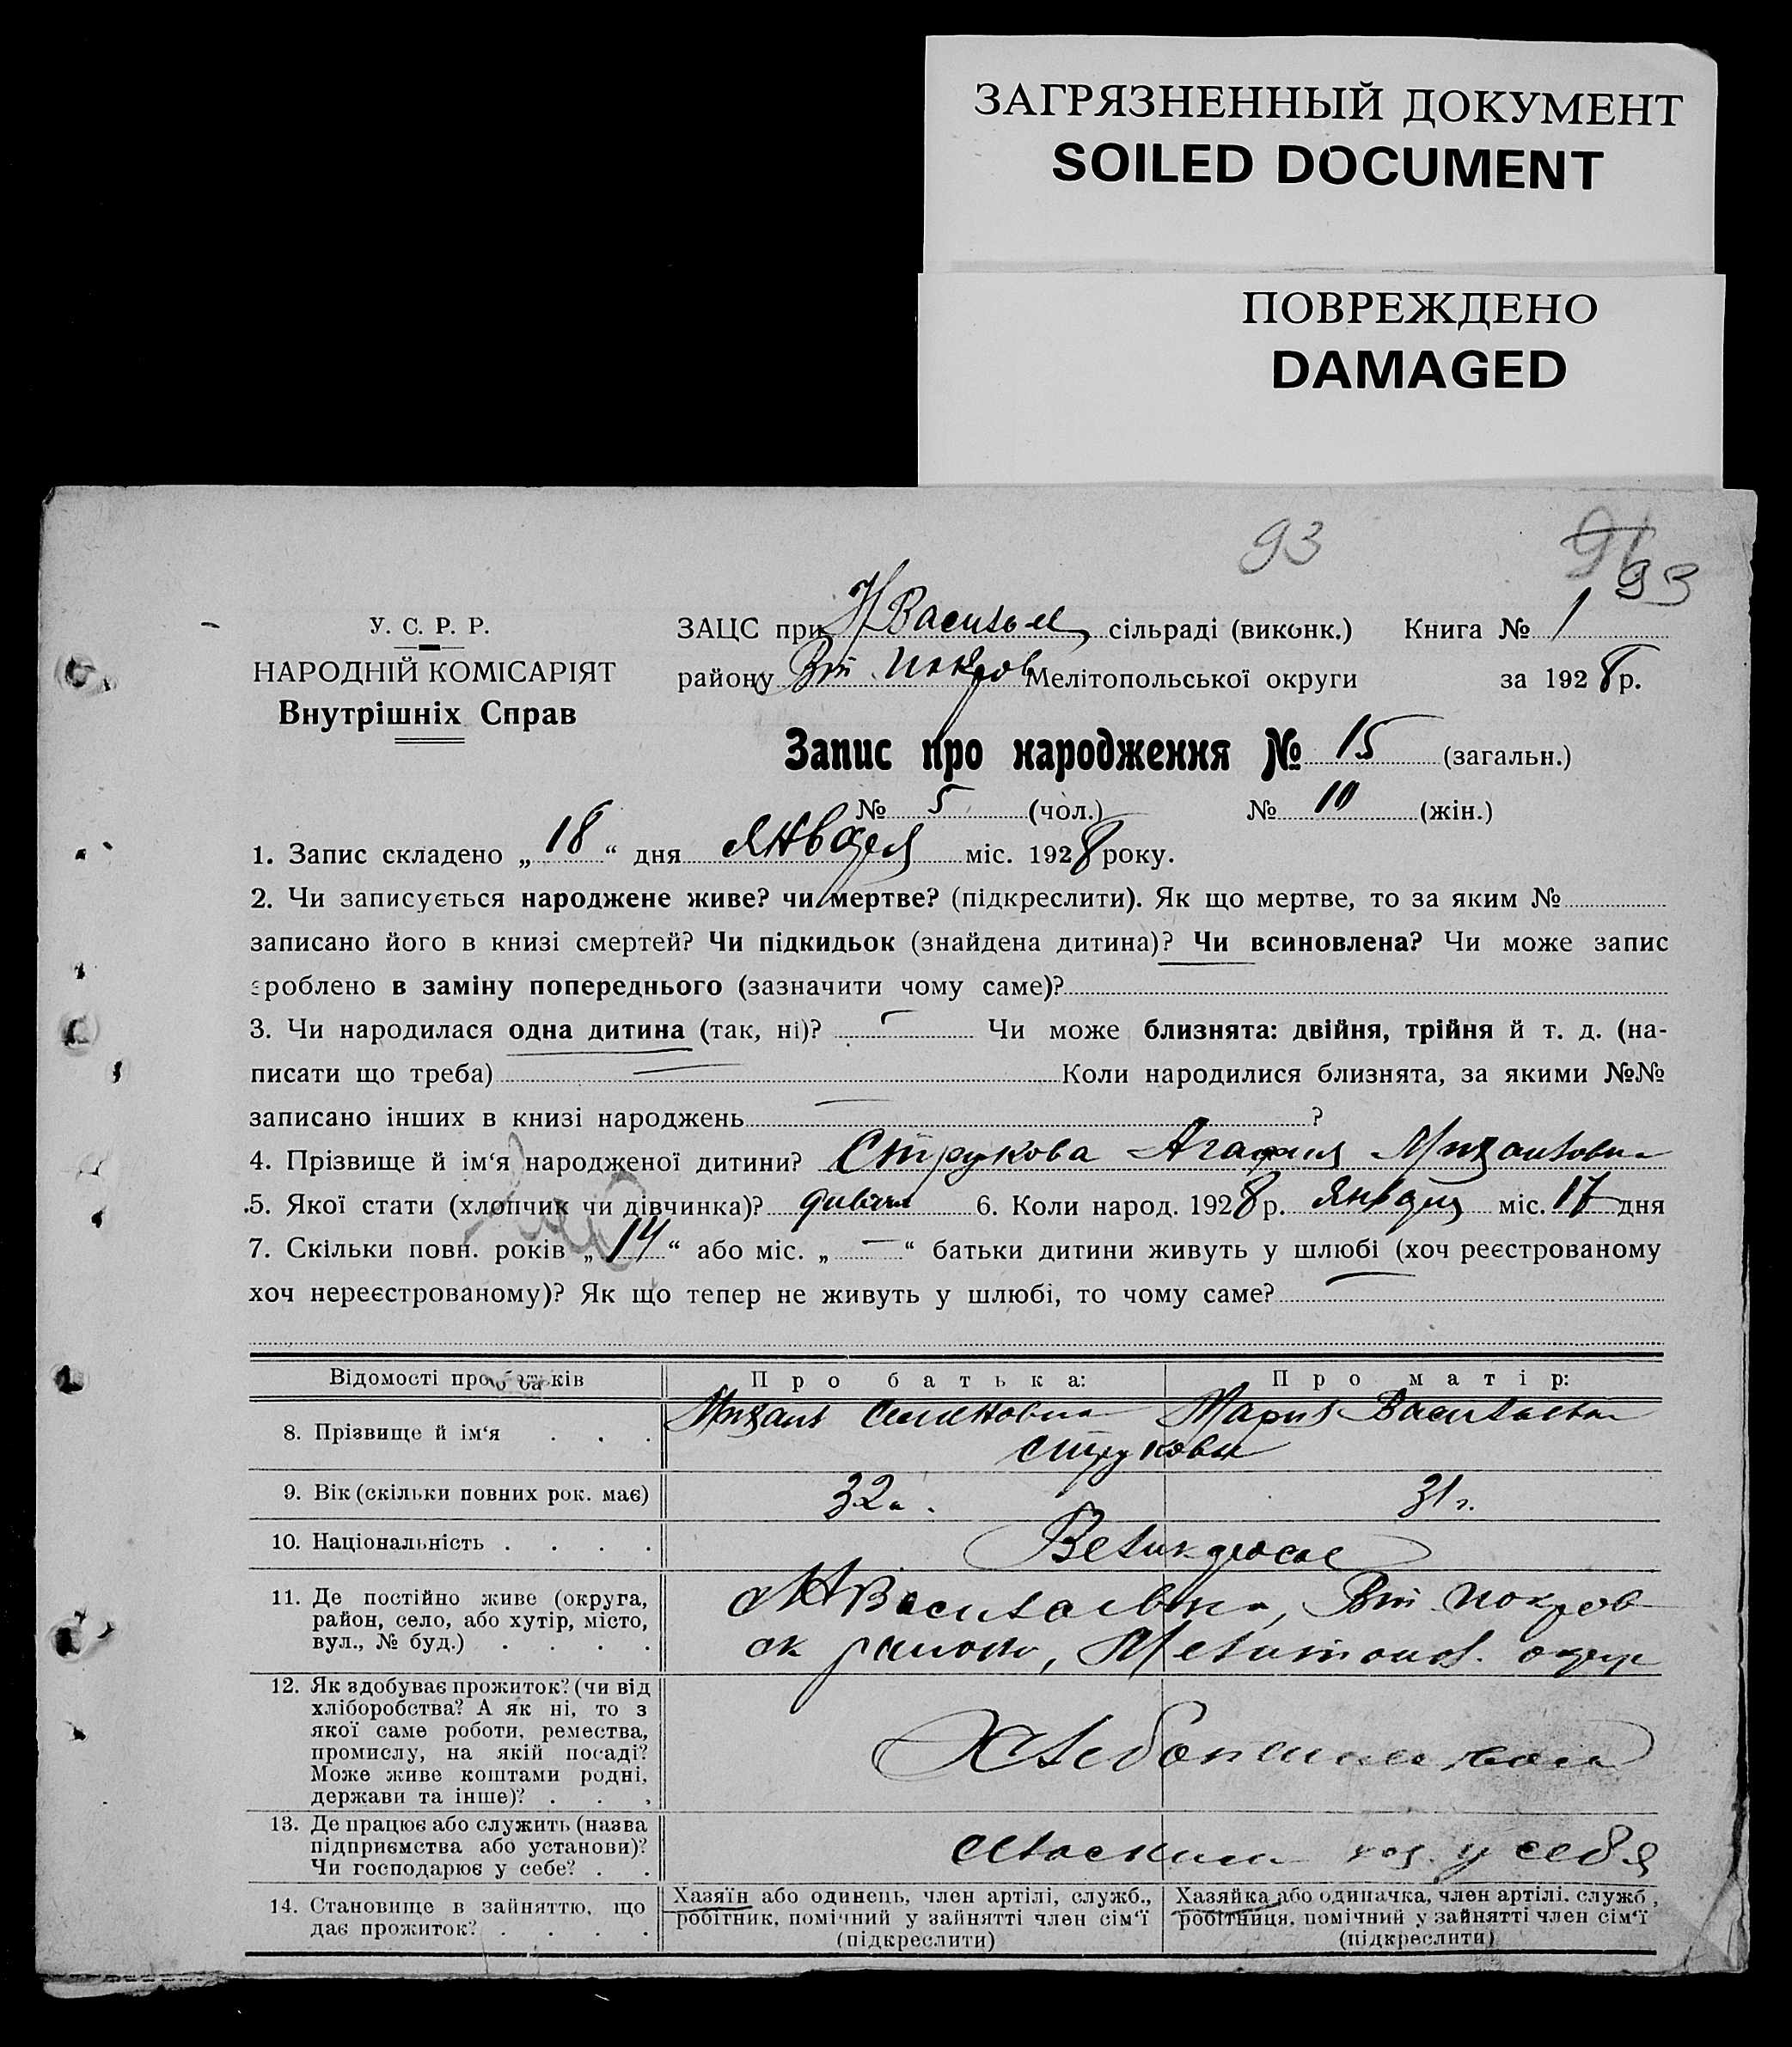 ЗАГРЯЗНЕННЫЙ ДОКУМЕНТ
SOILED DOCUMENT
ПОВРЕЖДЕНО
DAMAGED
93
91 93
У. С. Р. Р.
НАРОДНІЙ КОМІСАРІЯТ
Внутрішніх Справ
ЗАЦС при Н Васильев сільраді (виконк.) Книга № 1
району Вт Покров Мелітопольської округи за 1928 р.
Запис про народження № 15 (загальн.)
№ 5 (чол.) № 10 (жін.)
1. Запис складено „ 18 “ дня января міс. 1928 року.
2. Чи записується народжене живе? чи мертве? (підкреслити). Як що мертве, то за яким №
записано його в книзі смертей? Чи підкидьок (знайдена дитина)? Чи всиновлена? Чи може запис
зроблено в заміну попереднього (зазначити чому саме)?
3. Чи народилася одна дитина (так, ні)? — Чи може близнята: двійня, трійня й т. д. (на-
писати що треба) — Коли народилися близнята, за якими №№
записано інших в книзі народжень — ?
4. Прізвище й ім‘я народженої дитини? Струкова Агафия Михайловна
5. Якої стати (хлопчик чи дівчинка)? 6. Коли народ. 1928 р. января міс. 17 дня
7. Скільки повн. років „ 14 “ або міс. „ — “ батьки дитини живуть у шлюбі (хоч реєстрованому
хоч нереєстрованому)? Як що тепер не живуть у шлюбі, то чому саме? —
Відомості про батьків
Про батька:
Про матір:
8. Прізвище й ім‘я . . .
Михаил Семенович Мария Васильевна
Струковы
9. Вік (скільки повних рок. має)
32 г.
31 г.
10. Національність . . . .
Великоросс
11. Де постійно живе (округа,
район, село, або хутір, місто,
вул., № буд.) . . . .
с Н Васильевка, Вт Покров
ск района, Мелитопол. округ
12. Як здобуває прожиток? (чи від
хліборобства? А як ні, то з
якої саме роботи, ремества,
промислу, на якій посаді?
Може живе коштами родні,
держави та інше)? . . .
Хлебопашеством
13. Де працює або служить (назва
підприємства або установи)?
Чи господарює у себе? . .
у себя
14. Становище в зайняттю, що
дає прожиток? . . . .
Хазяїн або одинець, член артілі, служб.,
робітник, помічний у зайнятті член сім‘ї
(підкреслити)
Хазяйка або одиначка, член артілі. служб.,
робітниця, помічний у зайнятті член сім‘ї
(підкреслити)